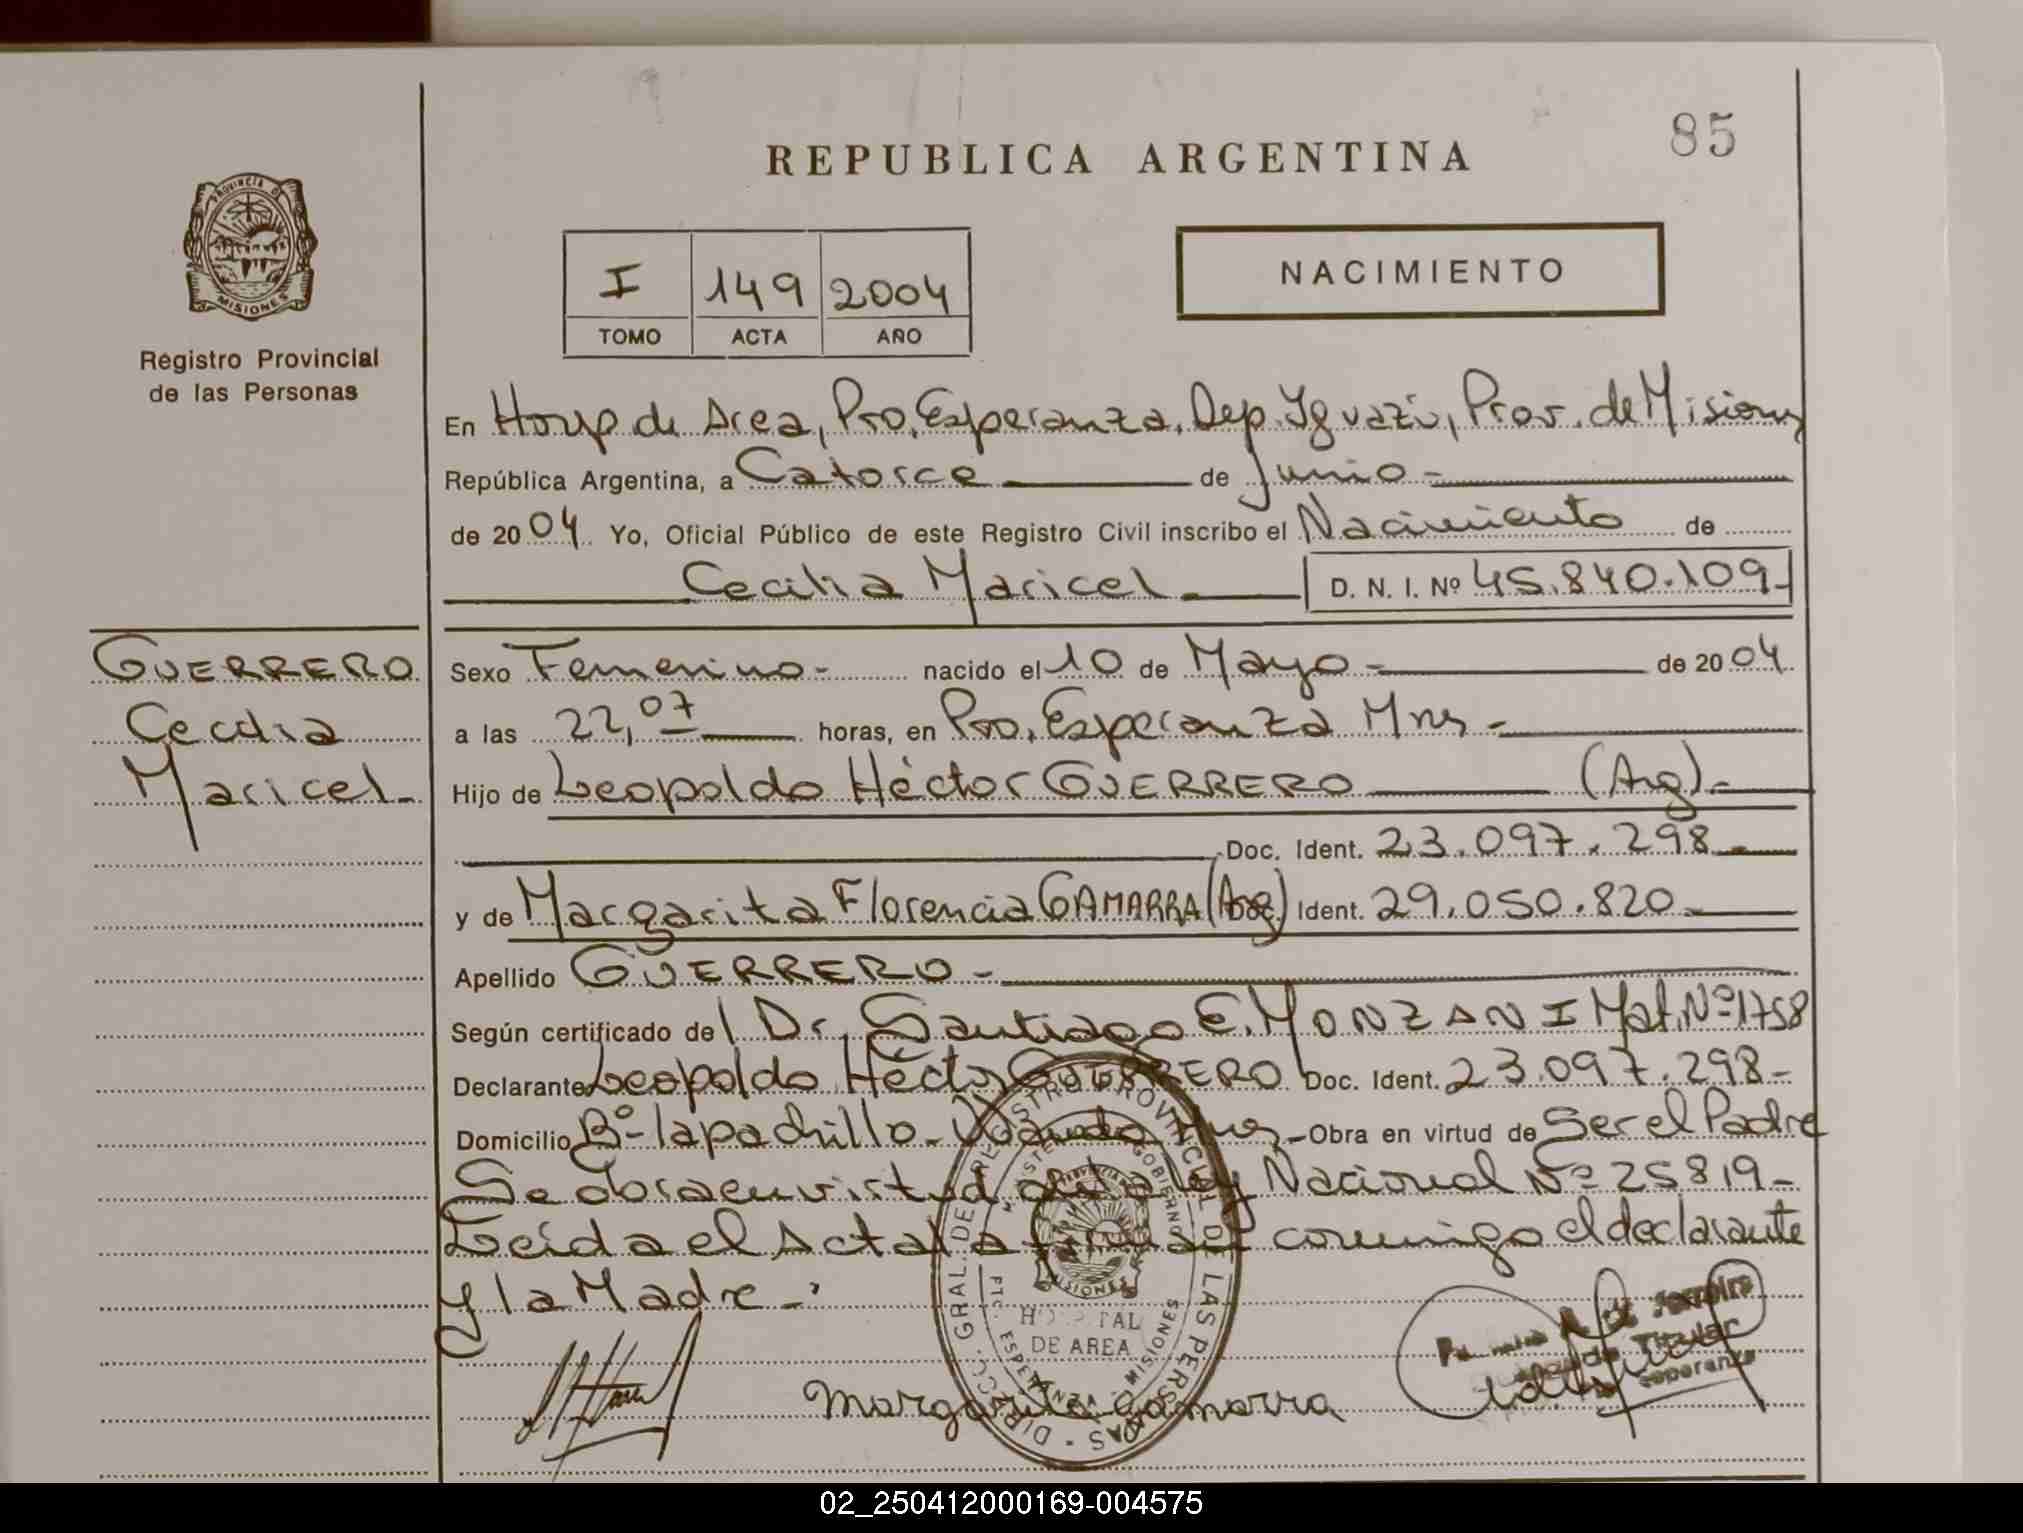 85
REPUBLICA ARGENTINA
PROVINCIA DE
MISIONES
Registro Provincial
de las Personas
I 149 2004
TOMO ACTA AÑO
NACIMIENTO
En Hosp de Area, Pto. Esperanza, Dep. Iguazú, Prov. de Misiones
República Argentina, a Catorce de Junio -
de 2004 Yo, Oficial Público de este Registro Civil inscribo el Nacimiento de
Cecilia Maricel D. N. I. Nº 45.840.109-
GUERRERO
Cecilia
Maricel-
Sexo Femenino- nacido el 10 de Mayo - de 2004
a las 22,07 horas, en Pto. Esperanza Mnes -
Hijo de Leopoldo Héctor GUERRERO (Arg)-
Doc. Ident. 23.097.298-
y de Margarita Florencia GAMARRA (Arg) Ident. 29.050.820-
Apellido GUERRERO-
Según certificado del Dr. Santiago E. MONZANI Mat. Nº 1758
Declarante Leopoldo Héctor GUERRERO Doc. Ident. 23.097.298-
Domicilio Bº- lapachillo- Wanda Mnes- Obra en virtud de Ser el Padre
Se obra en virtud de la ley Nacional Nº 25819-
Leída el Acta la firman conmigo el declarante
y la Madre-.
DIRECC. GRAL. DE REGISTRO PROVINCIAL DE LAS PERSONAS
PROVINCIA
MISIONES
HOSPITAL
DE AREA
ESPERANZA - MISIONES
Margarita Gamarra
Titular
Esperanza
02_250412000169-004575